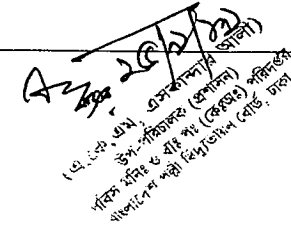 ২৫/২/২১
(এ, কে, এম, এসকান্দার আলী)
উপ-পরিচালক (প্রশাসন)
পবিস মনিঃ ও ব্যঃ পঃ (কেঃঅঃ) পরিদপ্তর
বাংলাদেশ পল্লী বিদ্যুতায়ন বোর্ড, ঢাকা